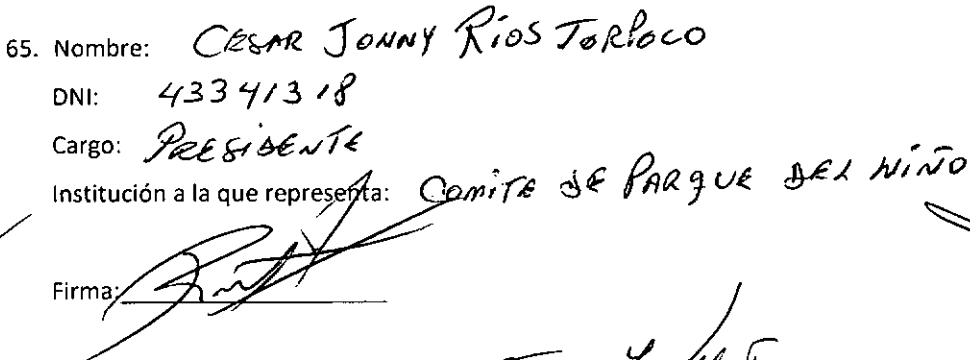 65. Nombre: CESAR JONNY Ríos TORPOCO
DNI: 43341318
Cargo: PRESIDENTE
Institución a la que representa: COMITE DE PARQUE DEL NIÑO
Firma: